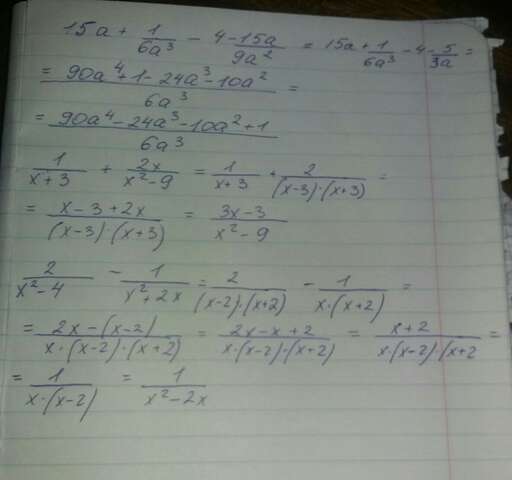 15a + 1/6a³ - 4 - 15a/9a² = 15a + 1/6a³ - 4 - 5/3a =
= 90a⁴ + 1 - 24a³ - 10a²/6a³ =
= 90a⁴ - 24a³ - 10a² + 1/6a³
1/x+3 + 2x/x²-9 = 1/x+3 + 2/(x-3)·(x+3) =
= x-3+2x/(x-3)·(x+3) = 3x-3/x²-9
2/x²-4 - 1/x²+2x = 2/(x-2)·(x+2) - 1/x·(x+2) =
= 2x-(x-2)/x·(x-2)·(x+2) = 2x-x+2/x·(x-2)·(x+2) = x+2/x·(x-2)·(x+2 =
= 1/x·(x-2) = 1/x²-2x